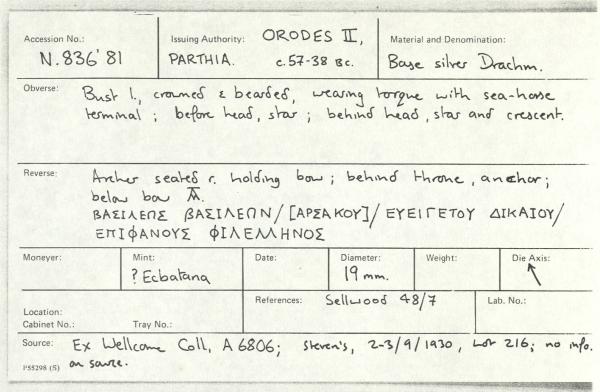 Accession No.: Issuing Authority: ORODES II, Material and Denomination:
N.836'81 PARTHIA. c.57-38 BC. Base silver Drachm.
Obverse: Bust l., crowned & bearded, wearing torque with sea-horse
terminal; before head, star; behind head, star and crescent.
Reverse: Archer seated r. holding bow; behind throne, anchor;
below bow
ΒΑΣΙΛΕΩΣ ΒΑΣΙΛΕΩΝ/[ΑΡΣΑΚΟΥ]/ΕΥΕΙΓΕΤΟΥ ΔΙΚΑΙΟΥ/
ΕΠΙΦΑΝΟΥΣ ΦΙΛΕΛΛΗΝΟΣ
Moneyer: Mint: Date: Diameter: Weight: Die Axis:
? Ecbatana 19 mm. ↖
References: Sellwood 48/7 Lab. No.:
Location:
Cabinet No.: Tray No.:
Source: Ex Wellcome Coll, A 6806; Steven's, 2-3/9/1930, Lot 216; no info.
P55298 (5) on source.